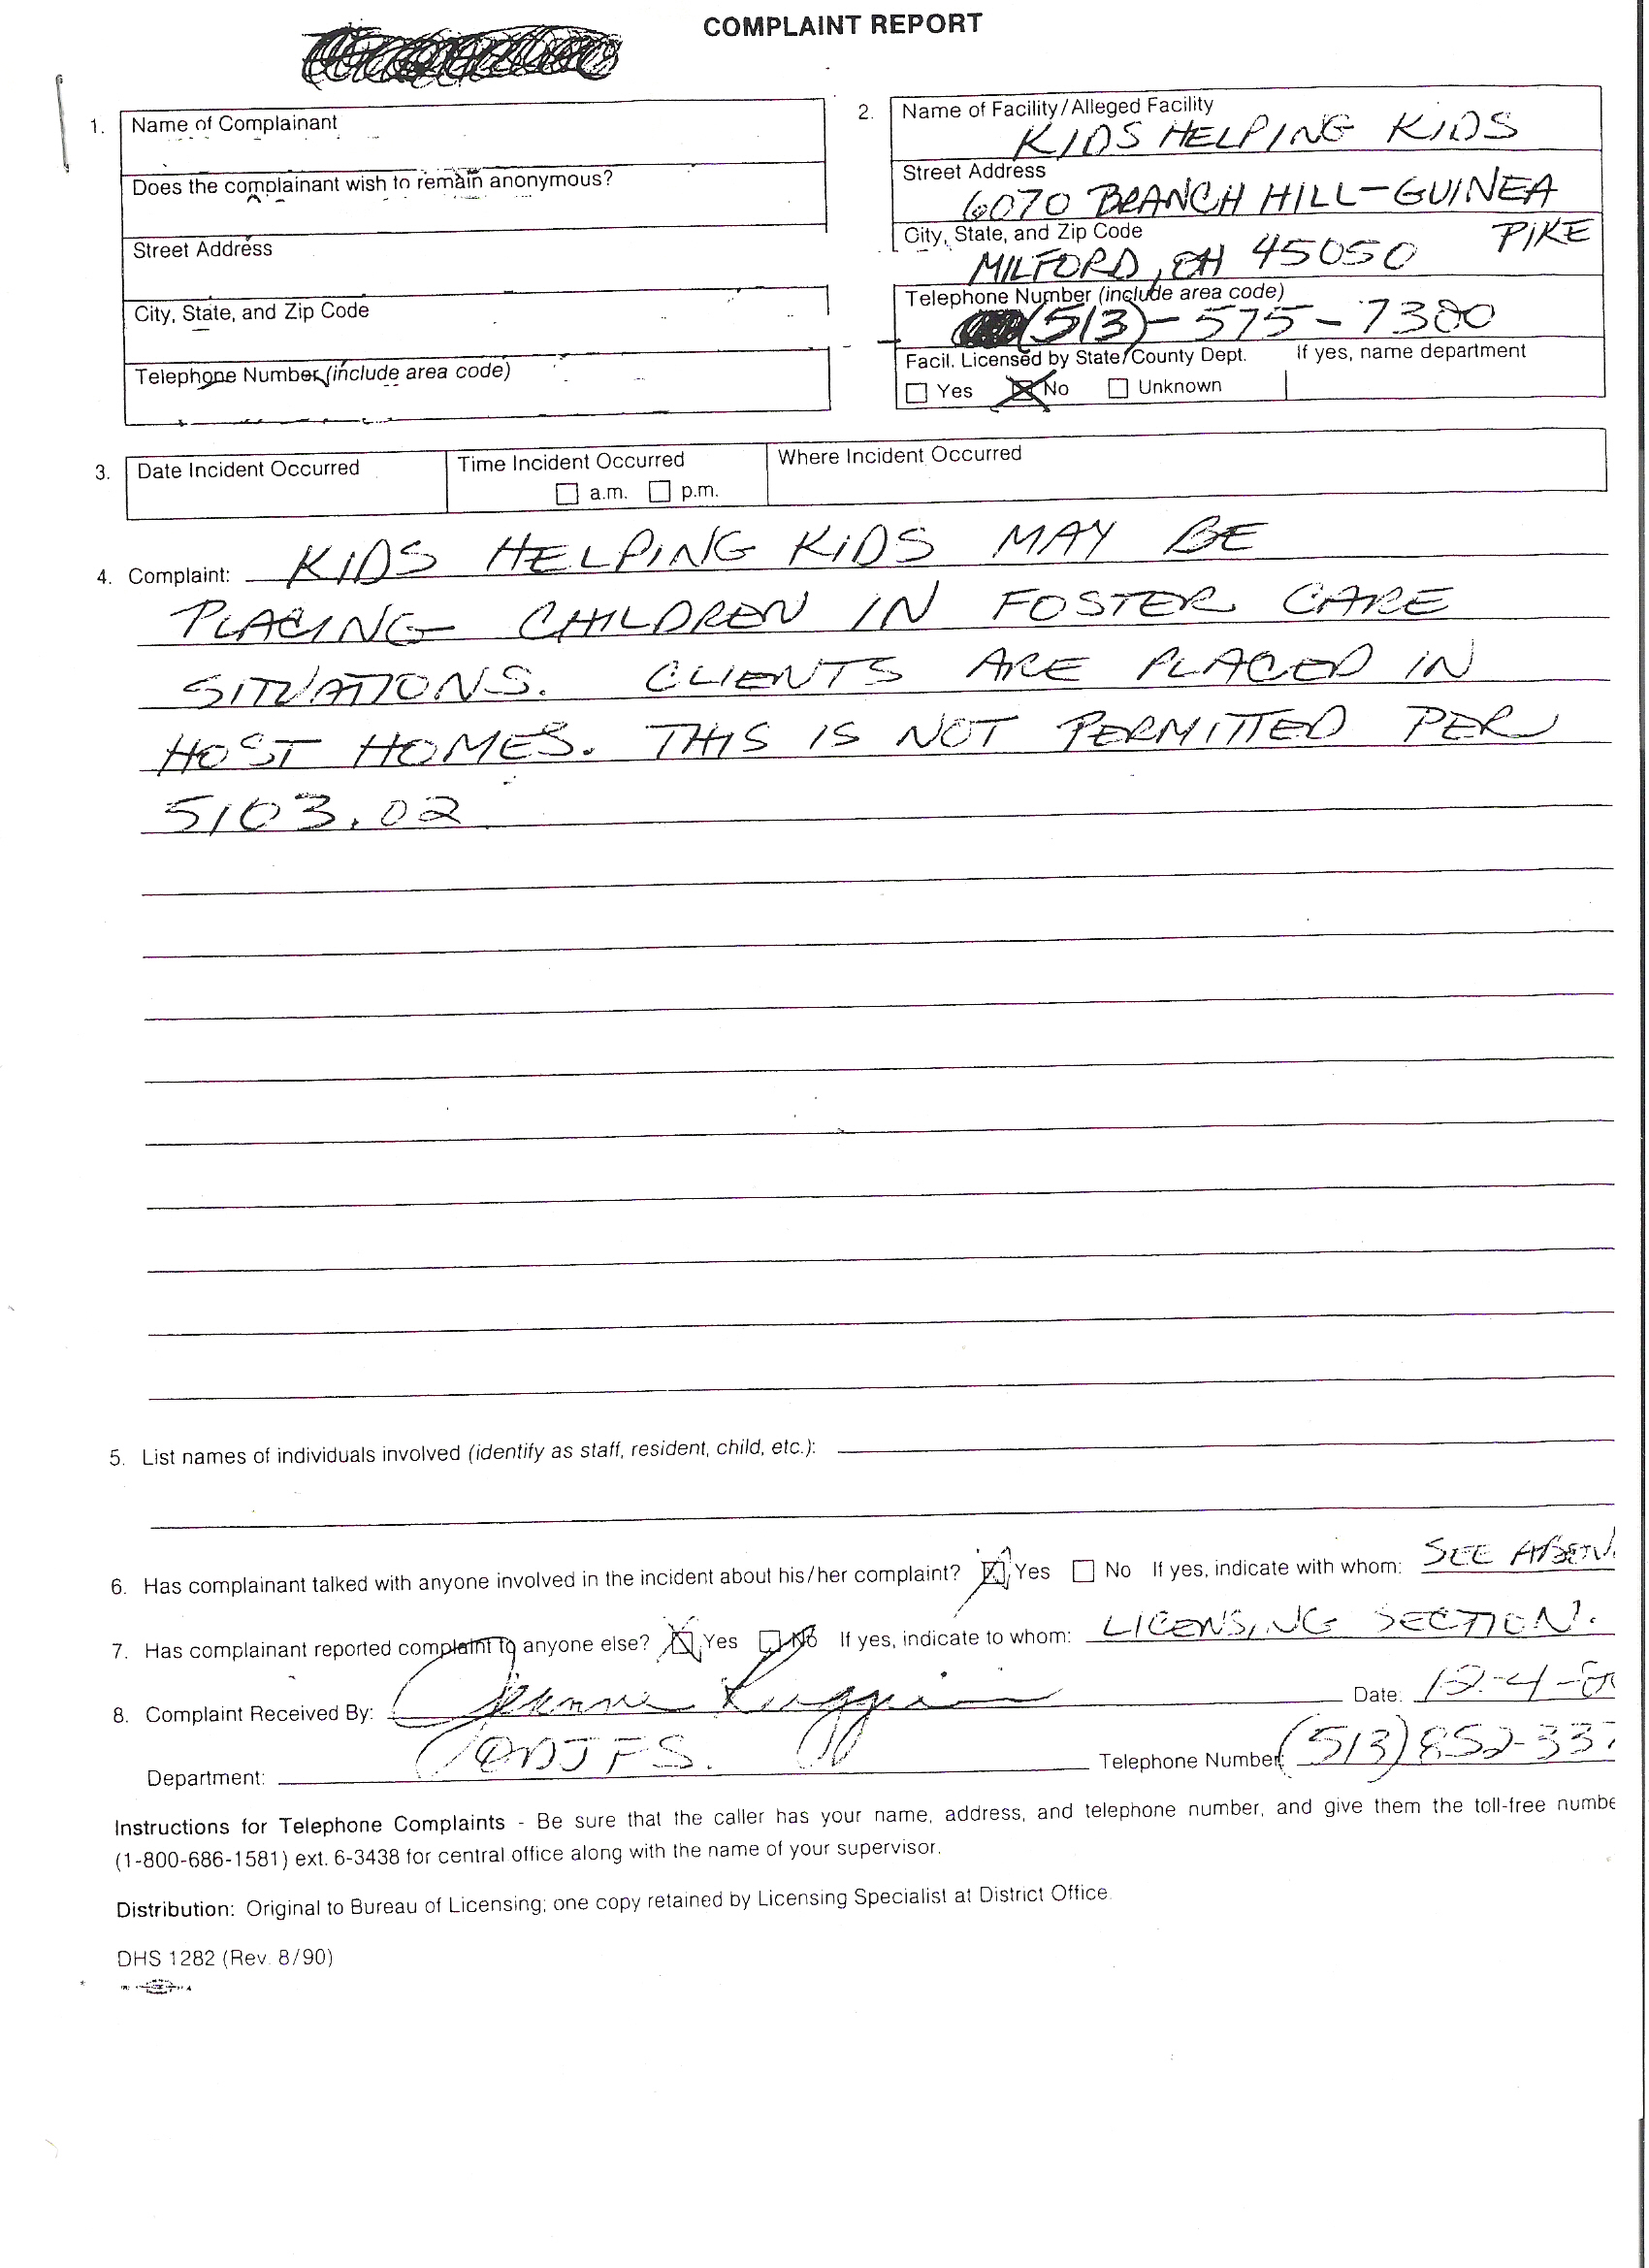 COMPLAINT REPORT
1. Name of Complainant
Does the complainant wish to remain anonymous?
Street Address
City, State, and Zip Code
Telephone Number (include area code)
2. Name of Facility/Alleged Facility
KIDS HELPING KIDS
Street Address
6070 BRANCH HILL-GUINEA
PIKE
City, State, and Zip Code
MILFORD, OH 45050
Telephone Number (include area code)
(513)-575-7300
Facil. Licensed by State/County Dept. If yes, name department
Yes No Unknown
3. Date Incident Occurred Time Incident Occurred Where Incident Occurred
a.m. p.m.
4. Complaint: KIDS HELPING KIDS MAY BE
PLACING CHILDREN IN FOSTER CARE
SITUATIONS. CLIENTS ARE PLACED IN
HOST HOMES. THIS IS NOT PERMITTED PER
5103.02
5. List names of individuals involved (identify as staff, resident, child, etc.):
6. Has complainant talked with anyone involved in the incident about his/her complaint? Yes No If yes, indicate with whom: SEE
7. Has complainant reported complaint to anyone else? Yes No If yes, indicate to whom: LICENSING SECTION.
8. Complaint Received By: Date: 12-4-
Department: ODJFS. Telephone Number (513) 852-33
Instructions for Telephone Complaints - Be sure that the caller has your name, address, and telephone number, and give them the toll-free numbe
(1-800-686-1581) ext. 6-3438 for central office along with the name of your supervisor.
Distribution: Original to Bureau of Licensing; one copy retained by Licensing Specialist at District Office.
DHS 1282 (Rev. 8/90)